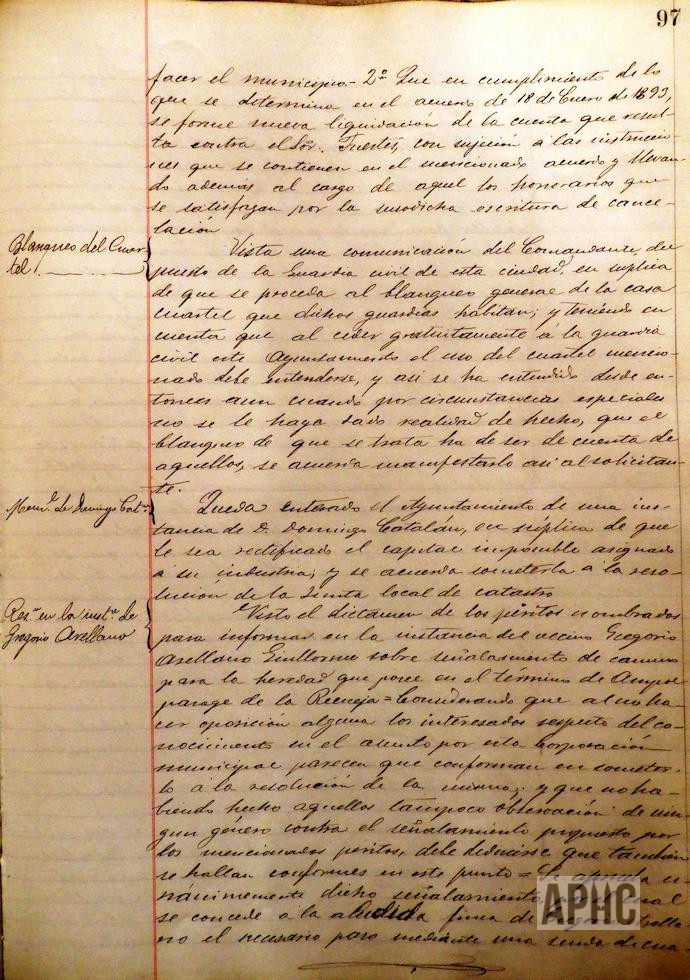 97
facer el municipio.- 2º Que en cumplimiento de lo
que se determina en el acuerdo de 18 de Enero de 1893,
se forme nueva liquidación de la cuenta que resul-
ta contra el Sor. Fuertes, con sujeción á las instruccio-
nes que se contienen en el mencionado acuerdo y llevan-
do ademas al cargo de aquel los honorarios que
se satisfagan por la susodicha escritura de cance-
lación
Blanqueo del Cuar-
tel
Vista una comunicación del Comandante del
puesto de la Guardia civil de esta ciudad, en súplica
de que se proceda al blanqueo general de la casa
cuartel que dichos guardias habitan; y teniendo en
cuenta que al ceder gratuitamente á la guardia
civil este Ayuntamiento el uso del cuartel mencio-
nado debe entenderse, y asi se ha entendido desde en-
tonces aun cuando por circunstancias especiales
no se le haya dado realidad de hecho, que el
blanqueo de que se trata ha de ser de cuenta de
aquellos, se acuerda manifestarlo asi al solicitan-
te.
de Domingo Catn
Queda enterado el Ayuntamiento de una ins-
tancia de D. Domingo Catalán, en súplica de que
le sea rectificado el capital imponible asignado
á su industria; y se acuerda someterla á la reso-
lución de la Junta local de catastro
Resn en la insta de
Gregorio Arellano
Visto el dictamen de los peritos nombrados
para informar en la instancia del vecino Gregorio
Arellano Guillorme sobre señalamiento de camino
para la heredad que posee en el término de
parage de la = Considerando que al no ha-
cer oposición alguna los interesados respeto del co-
nocimiento en el asunto por esta Corporación
municipal parecen que conforman en someter-
lo á la resolución de la misma; y que no ha-
biendo hecho aquellos tampoco observación de nin-
gun género contra el señalamiento propuesto por
los mencionados peritos, debe deducirse que tambien
se hallan conformes en este punto = Se aprueba u-
nánimemente dicho señalamiento,
se concede a la aludida finca de
no el necesario paso mediante una senda de cua
APHC